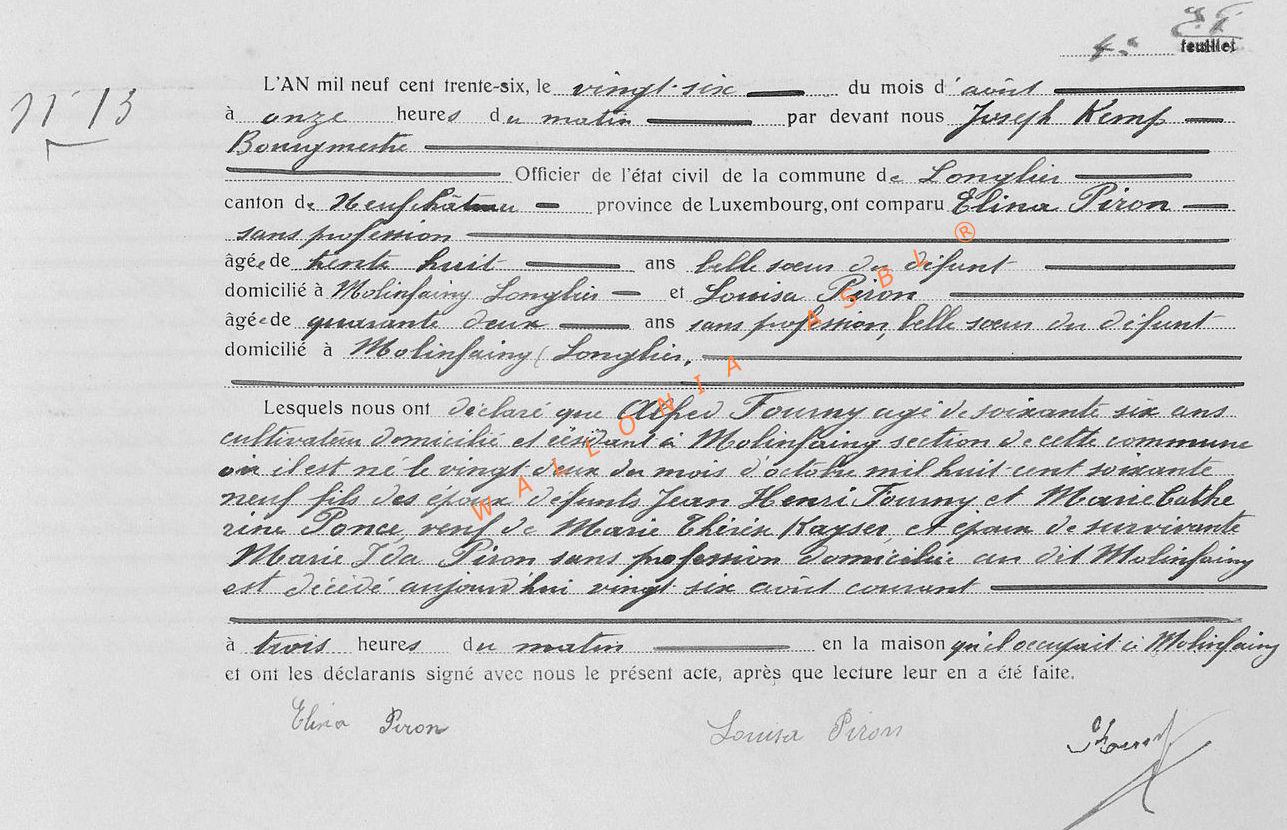 4e feuillet
N° 13
L'AN mil neuf cent trente-six, le vingt-six du mois d'août
à onze heures du matin par devant nous Joseph Kemp
Bourgmestre
Officier de l'état civil de la commune de Longlier
canton de Neufchâteau province de Luxembourg, ont comparu Elina Piron
sans profession
âgée de trente huit ans belle sœur du défunt
domicilié à Molinfaing Longlier et Louisa Piron
âgée de quarante deux ans sans profession, belle sœur du défunt
domicilié à Molinfaing (Longlier,
Lesquels nous ont déclaré que Alfred Fourny agé de soixante six ans
cultivateur domicilié et résidant à Molinfaing section de cette commune
où il est né le vingt deux du mois d'octobre mil huit cent soixante
neuf fils des époux défunts Jean Henri Fourny et Marie Cathe
rine Ponce, veuf de Marie Thérèse Kayser, et époux de survivante
Marie Ida Piron sans profession domiciliée au dit Molinfaing
est décédé aujourd'hui vingt six août courant
à trois heures du matin en la maison qu'il occupait à Molinfaing
et ont les déclarants signé avec nous le présent acte, après que lecture leur en a été faite.
Elina Piron Louisa Piron
WALLONIA ASBL ®